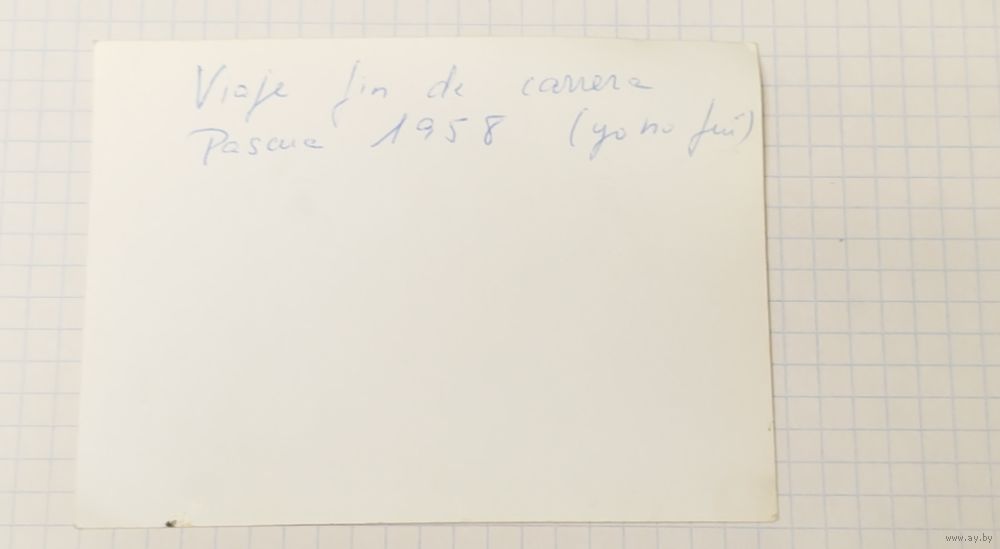 Viaje fin de carrera
Pascua 1958 (yo no fuí)
www.ay.by